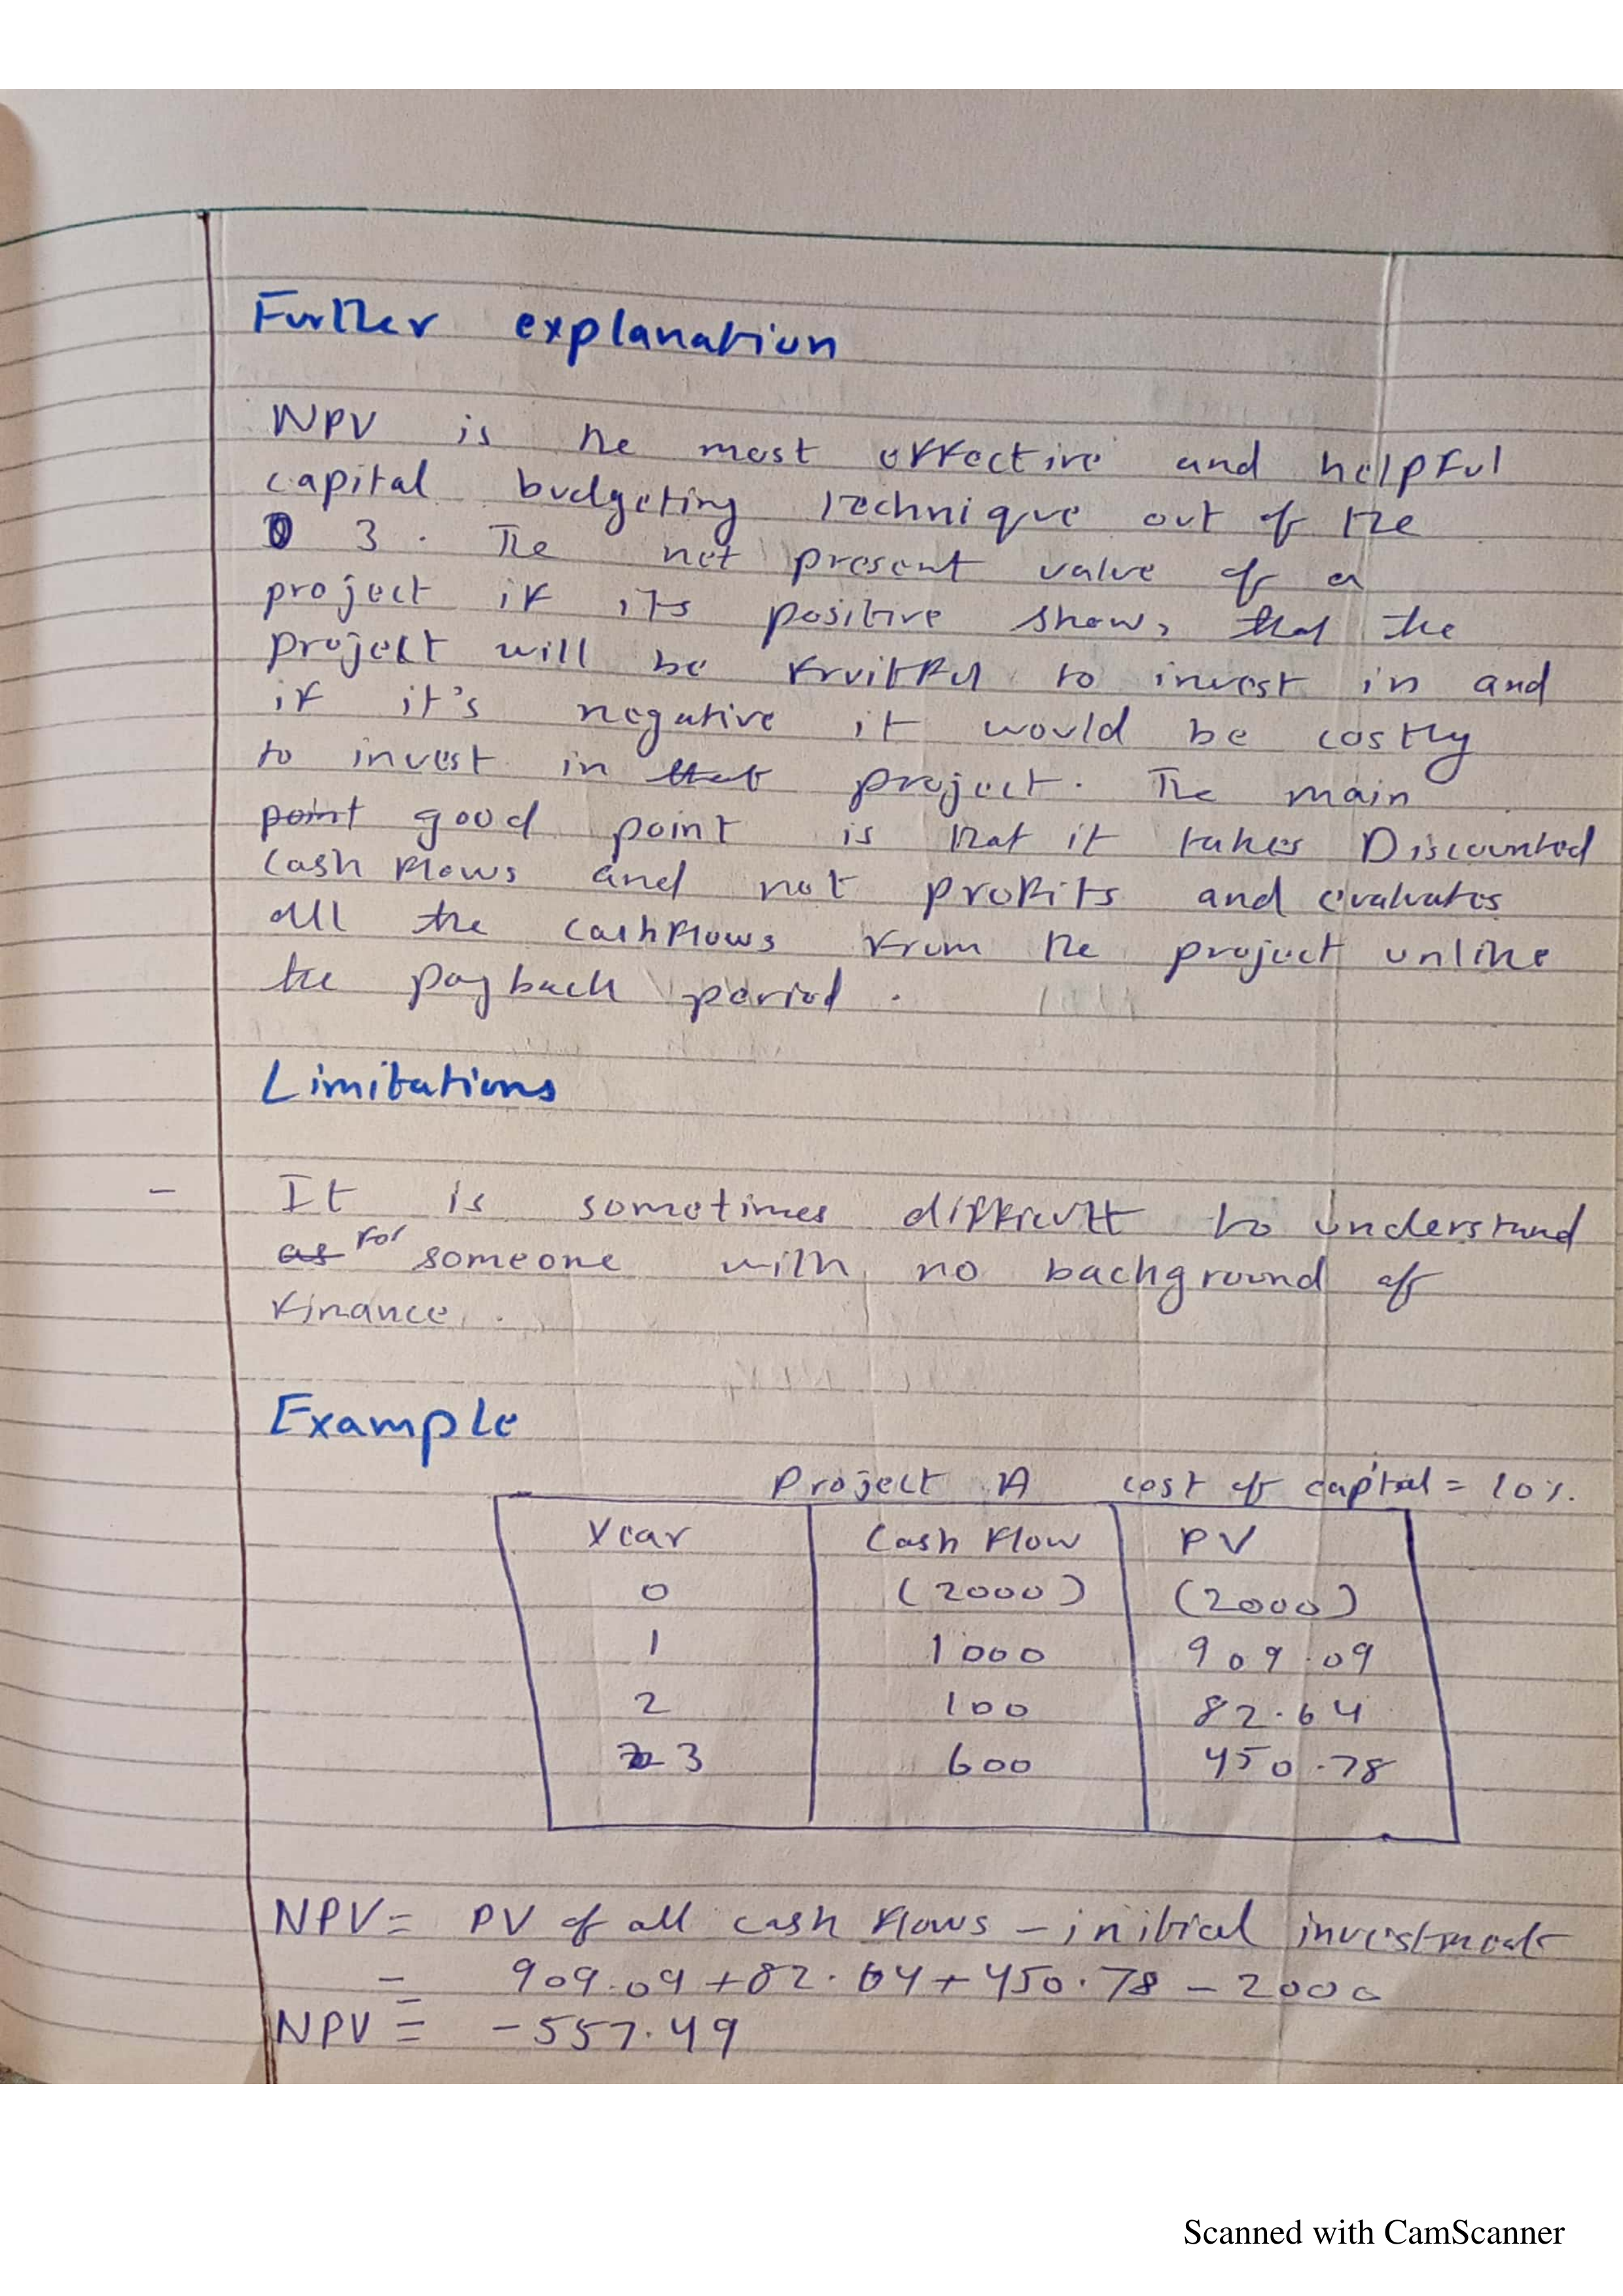 Further explanation
NPV is the most effective and helpful
capital budgeting technique out of the
3. The net present value of a
project if its positive shows that the
project will be fruitful to invest in and
if it's negative it would be costly
to invest in that project. The main
point good point is that it takes Discounted
cash flows and not profits and evaluates
all the cashflows from the project unlike
the payback period.
Limitations
- It is sometimes difficult to understand
as for someone with no background of
finance.
Example
Project A cost of capital = 10%.
Year Cash Flow PV
0 (2000) (2000)
1 1000 909.09
2 100 82.64
3 600 450.78
NPV = PV of all cash flows - initial investment
= 909.09 + 82.64 + 450.78 - 2000
NPV = -557.49
Scanned with CamScanner